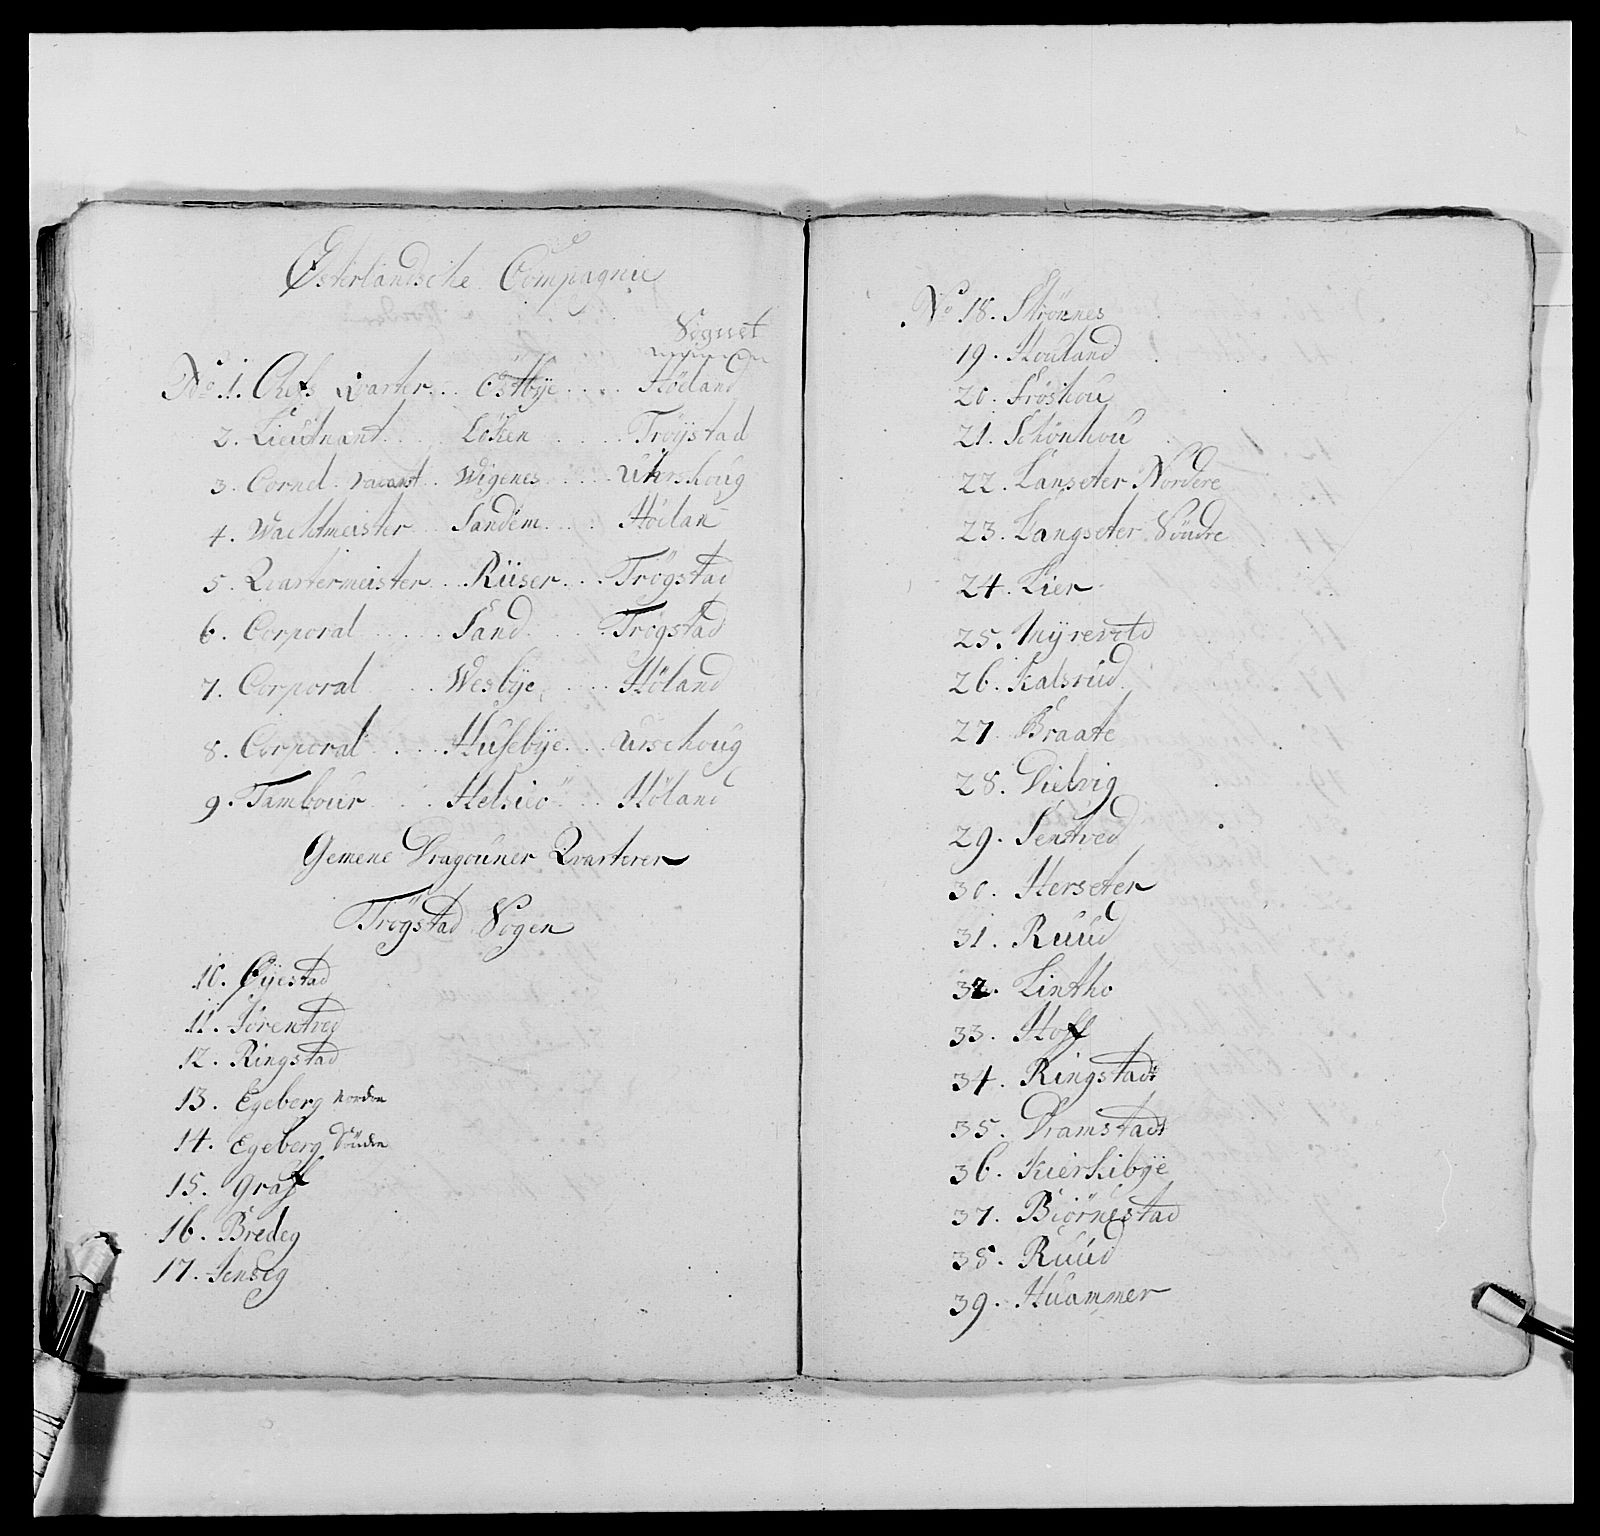 Österlandsche Compagnie
Sognet
No 1. Chefs Qvarter .. Östbye .... Höeland
2. Lieutnant .... Löken ..... Tröÿstad
3. Cornet vacant .. Wigenes .... Uhrshoug
4. Wachtmeister .. Sandem .... Höelan
5. Qvartermeister .. Riiser ... Trögstad
6. Corporal .... Sand .... Trögstad
7. Corporal ... Wesbÿe .... Höland
8. Corporal .... Husebÿe ... Urschoug
9. Tambour .... Helsieö ... Höland
Gemene Dragouner Qvarterer
Trögstad Sogen
10. Öÿestad
11. Sörentved
12. Ringstad
13. Egeberg Nordre
14. Egeberg Söndre
15. Graff
16. Bredeg
17. Jenseg
No 18. Strönnes
19. Houland
20. Fröshou
21. Schönhou
22. Lanseter Nordere
23. Langseter Söndre
24. Lier
25. Myrevold
26. Kalsrud
27. Braate
28. Dielvig
29. Sentved
30. Herseter
31. Ruud
32. Lintho
33. Hoff
34. Ringstadt
35. Dramstadt
36. Kierkibÿe
37. Biörnestad
38. Ruud
39. Huammer